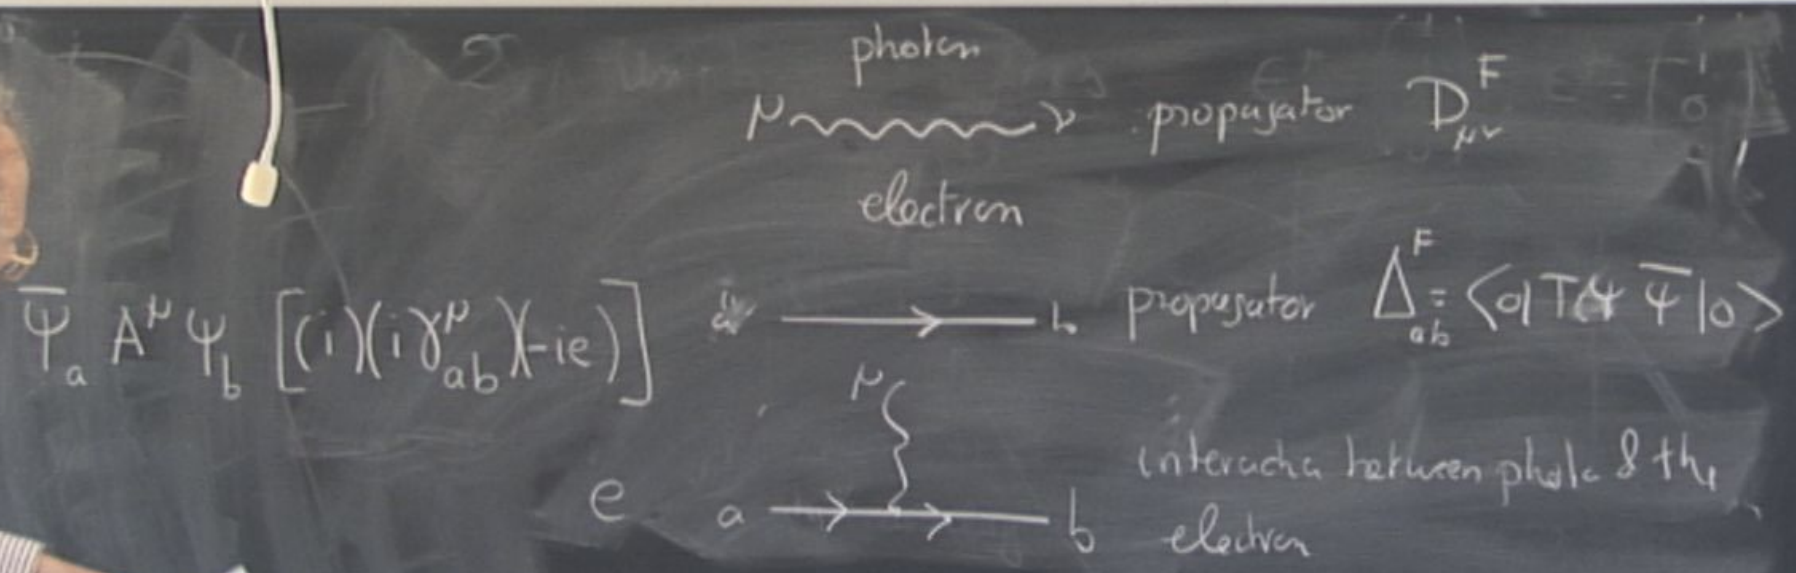 photon
μ ν propagator D^F_μν
electron
Ψ̄_a A^μ Ψ_b [(i)(iγ^μ_ab)(-ie)] b propagator Δ^F_ab = <0|T Ψ Ψ̄|0>
μ
interaction between photon & the
e a b electron